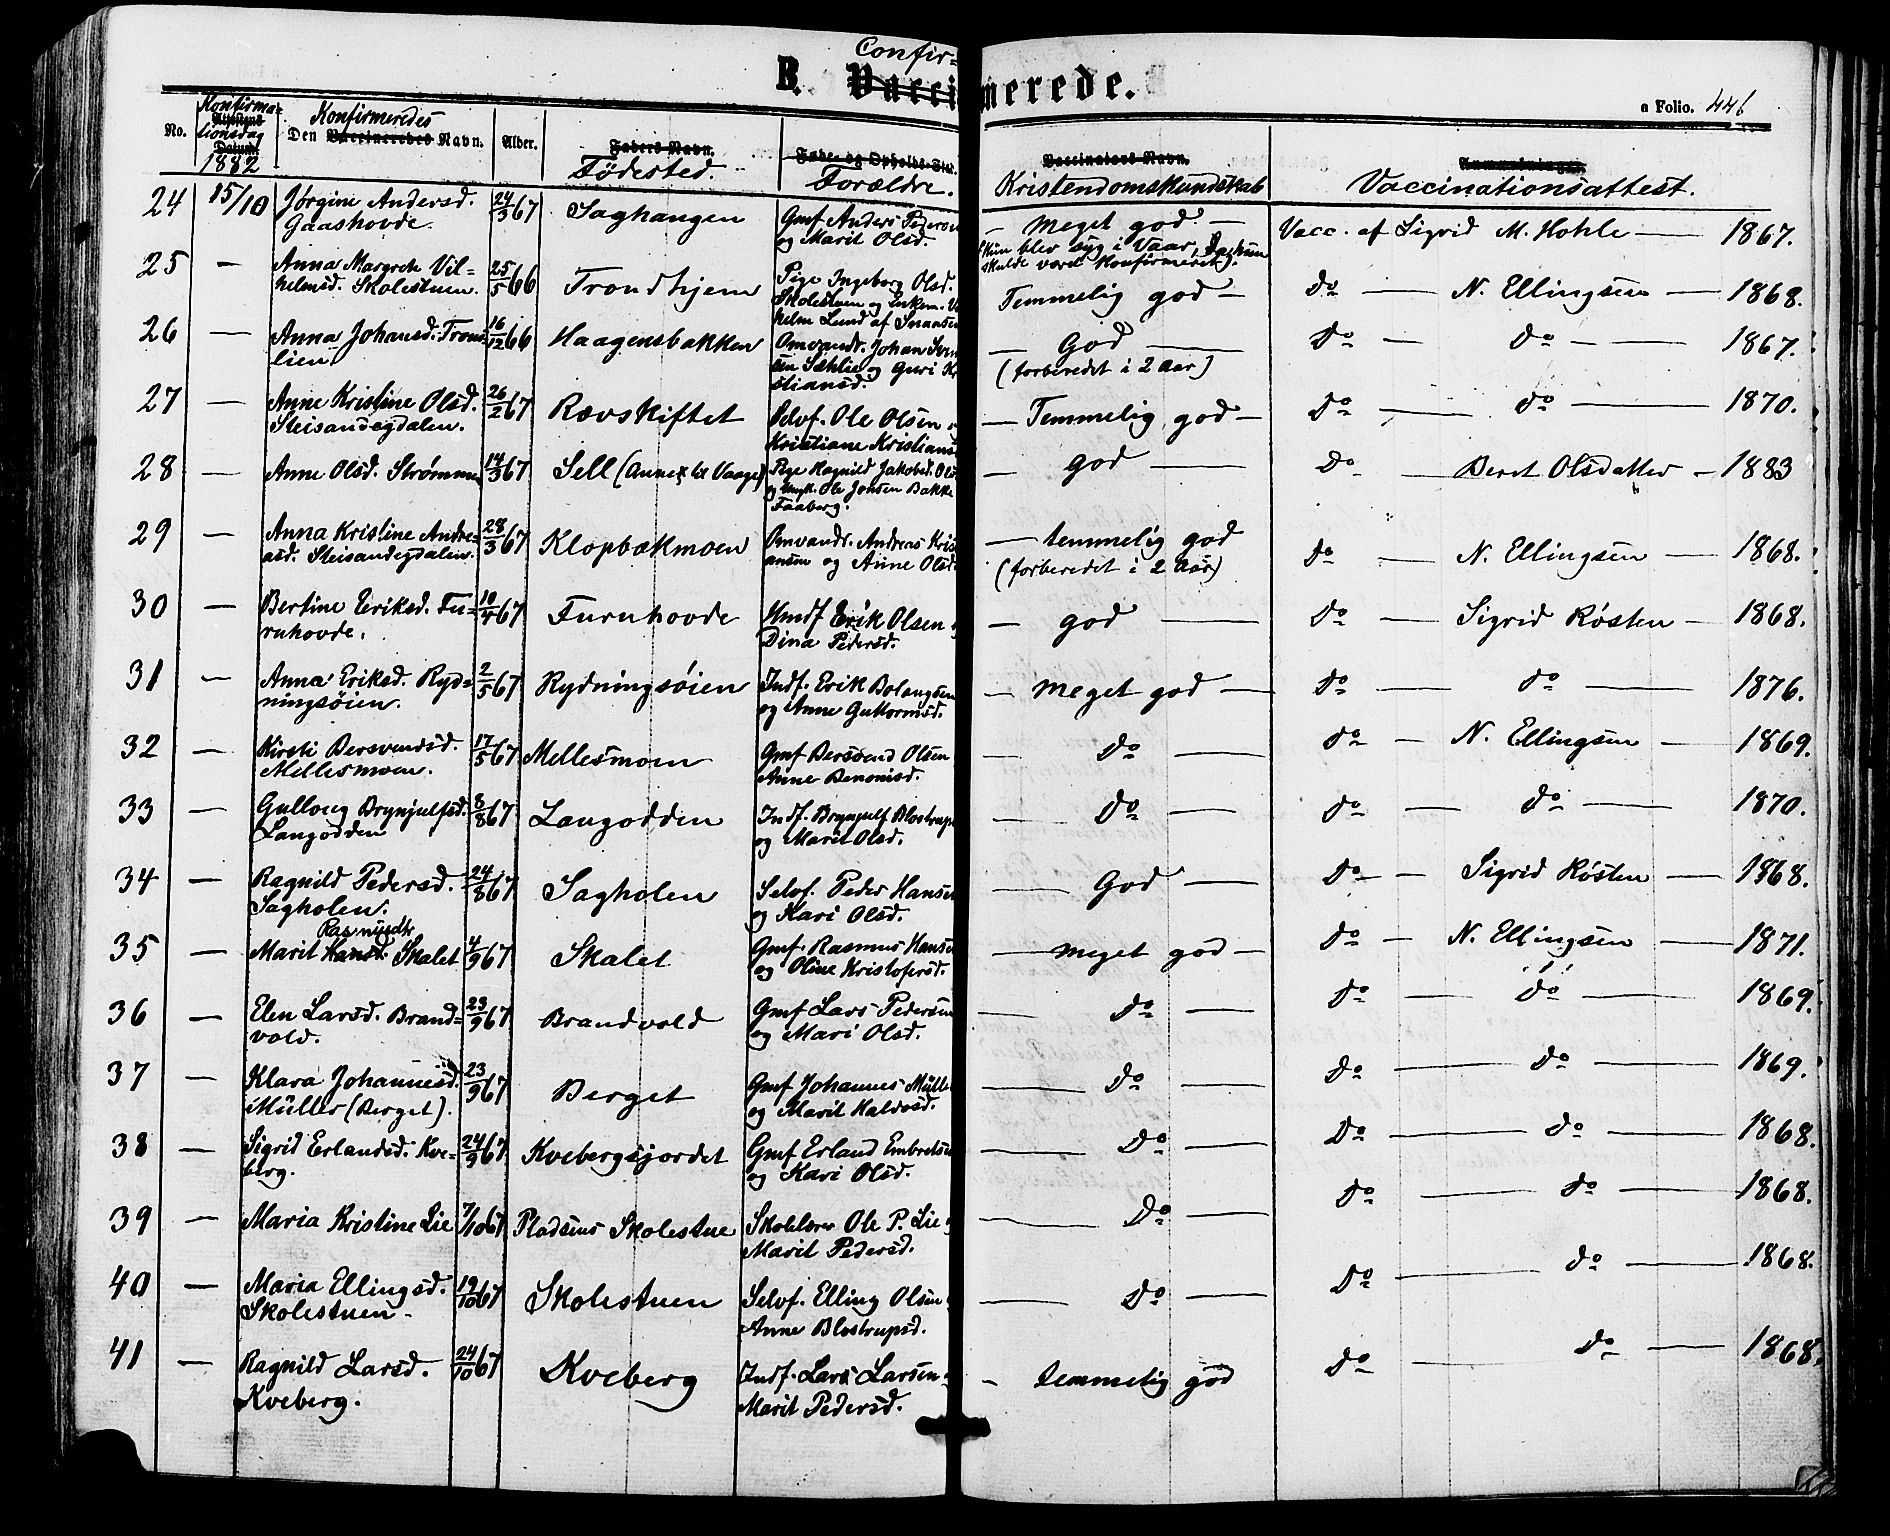 Confir-
B. Vaccinerede.
a Folio. 446
No. Konfirma= Konfirmeredes
tionsdag Den Vaccineredes Navn. Alder. Faders Navn. Fader og Opholds-Sted. Vaccinators Navn. Anmærkninger.
Datum
1882 Födested. Forældre. Kristendomskundskab Vaccinationsattest.
24 15/10 Jørgine Andersd. 24/3 67 Saghaugen Gmf Anders Pederse — Meget god — Vacc. af Sigrid M. Hohle — 1867.
Gaashovde. og Marit Olsd. (Hun blev syg i Vaar, da hun
skulde været konfirmeret).
25 — Anna Margrete Vil= 25/5 66 Trondhjem Pige Ingeborg Olsd. Temmelig god — Do — N. Ellingsen — 1868.
helmsd. Skolestuen. Skolestuen og Enkem. Vi
helm Lund af Snaasen
26 — Anna Johansd. Trøns 16/12 66 Haagensbakken Omvandr. Johan Sven — God — Do — Do — 1867.
lien. sen Sæhlie og Guri Kr (forberedet i 2 Aar)
stiansd.
27 — Anne Kristine Olsd. 26/2 67 Rævskiftet Selvf. Ole Olsen — Temmelig god — Do — do — 1870.
Steisandegdalen. Kristiane Kristians
28 — Anne Olsd. Strømme 14/3 67 Sell (Annex til Vaage) Pige Ragnild Jakobsd. Ols — god — Do — Beret Olsdatter — 1883
og Ungk. Ole Jonsen Bakke
Faaberg.
29 — Anna Kristine Andre= 28/3 67 Klopbækmoen Omvandr. Andreas Kris — temmelig god Do — N. Ellingsen — 1868.
asd. Steisandegdalen. ansen og Anne Olsd (forberedet i 2 Aar)
30 — Bertine Eriksd. Fu= 10/4 67 Furuhovde Hmdf Erik Olsen — god — Do — Sigrid Røsten — 1868.
ruhovde. Dina Pedersd.
31 — Anna Eriksd. Ryd= 2/5 67 Rydningsøien Indf. Erik Bolangsen — Meget god — Do — do — 1876.
ningsøien. og Anne Guttormsd.
32 — Kirsti Bersvendsd. 17/5 67 Mellesmoen Gmf Bersvend Olsen — Do — Do — N. Ellingsen — 1869.
Mellesmoen. Anne Benonisd.
33 — Gulloug Brynjulfsd. 8/8 67 Langodden Indf. Brynjulf Blostrups — Do — Do — do — 1870.
Langodden og Marit Olsd.
34 — Ragnild Pedersd. 24/8 67 Sagholen Selvf. Peder Hanse — God — Do — Sigrid Røsten — 1868.
Sagholen. og Kari Olsd.
Rasmusdtr
35 — Marit Hansd. Skalet 4/9 67 Skalet Gmf. Rasmus Hanse — meget god — Do — N. Ellingsen — 1871.
og Oline Kristofersd.
36 — Elen Larsd. Brand= 23/9 67 Brandvold Gmf Lars Pedersen — Do — Do — do — 1869.
vold. og Mari Olsd.
37 — Klara Johannesd. 23/9 67 Berget Gmf Johannes Mülle — Do — Do — do — 1869.
Müller (Berget). og Marit Halvosd.
38 — Sigrid Erlandsd. Kve= 24/9 67 Kvebergsjordet Gmf Erland Embretse — Do — Do — do — 1868.
berg. og Kari Olsd.
39 — Maria Kristine Lie 7/10 67 Pladsens Skolestue Skolelærer Ole P. Lie — Do — Do — do — 1868.
Marit Pedersd.
40 — Maria Ellingsd. 19/10 67 Skolestuen Selvf. Elling Olsen — Do — Do — do — 1868.
Skolestuen Anne Blostrupsd.
41 — Ragnild Larsd. 24/10 67 Kveberg Indf. Lars Larsen — temmelig god Do — do — 1868.
Kveberg. Marit Pedersd.